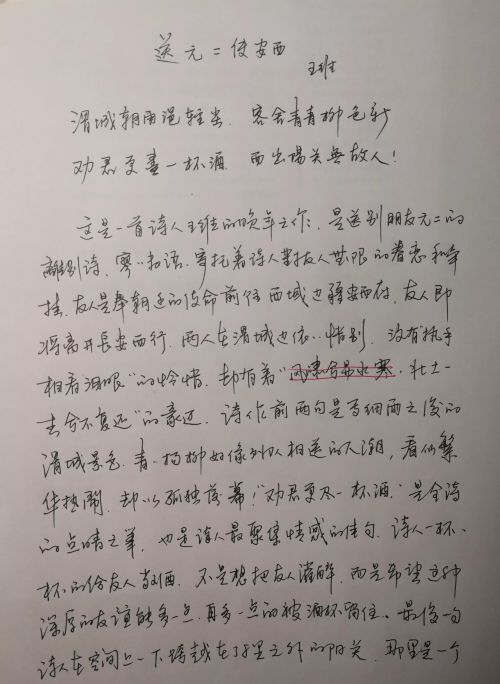 送元二使安西
王维
渭城朝雨浥轻尘. 客舍青青柳色新
劝君更盡一杯酒. 西出陽关無故人!
这是一首诗人王维的晚年之作, 是送别朋友元二的
離别诗. 寥寥数语. 寄托着诗人對友人無限的眷恋和牵
挂. 友人是奉朝廷的使命前往西域边疆安西府. 友人即
将离开長安西行. 两人在渭城边依依惜别. 没有"执手
相看泪眼"的怜惜. 却有着" 壮士一
去兮不复还"的豪迈. 诗作前两句是写细雨之後的
渭城景色. 青青杨柳好像列队相送的人潮, 看似繁
华热鬧. 却以孤独落幕! "劝君更尽一杯酒." 是全诗
的点睛之筆, 也是诗人最聚集情感的佳句. 诗人一杯一
杯的给友人敬酒. 不是想把友人灌醉. 而是希望这种
深厚的友谊能多一点. 再多一点的被酒杯留住. 最後一句
诗人在空间上一下跨越在了 里之外的阳关. 那里是一个